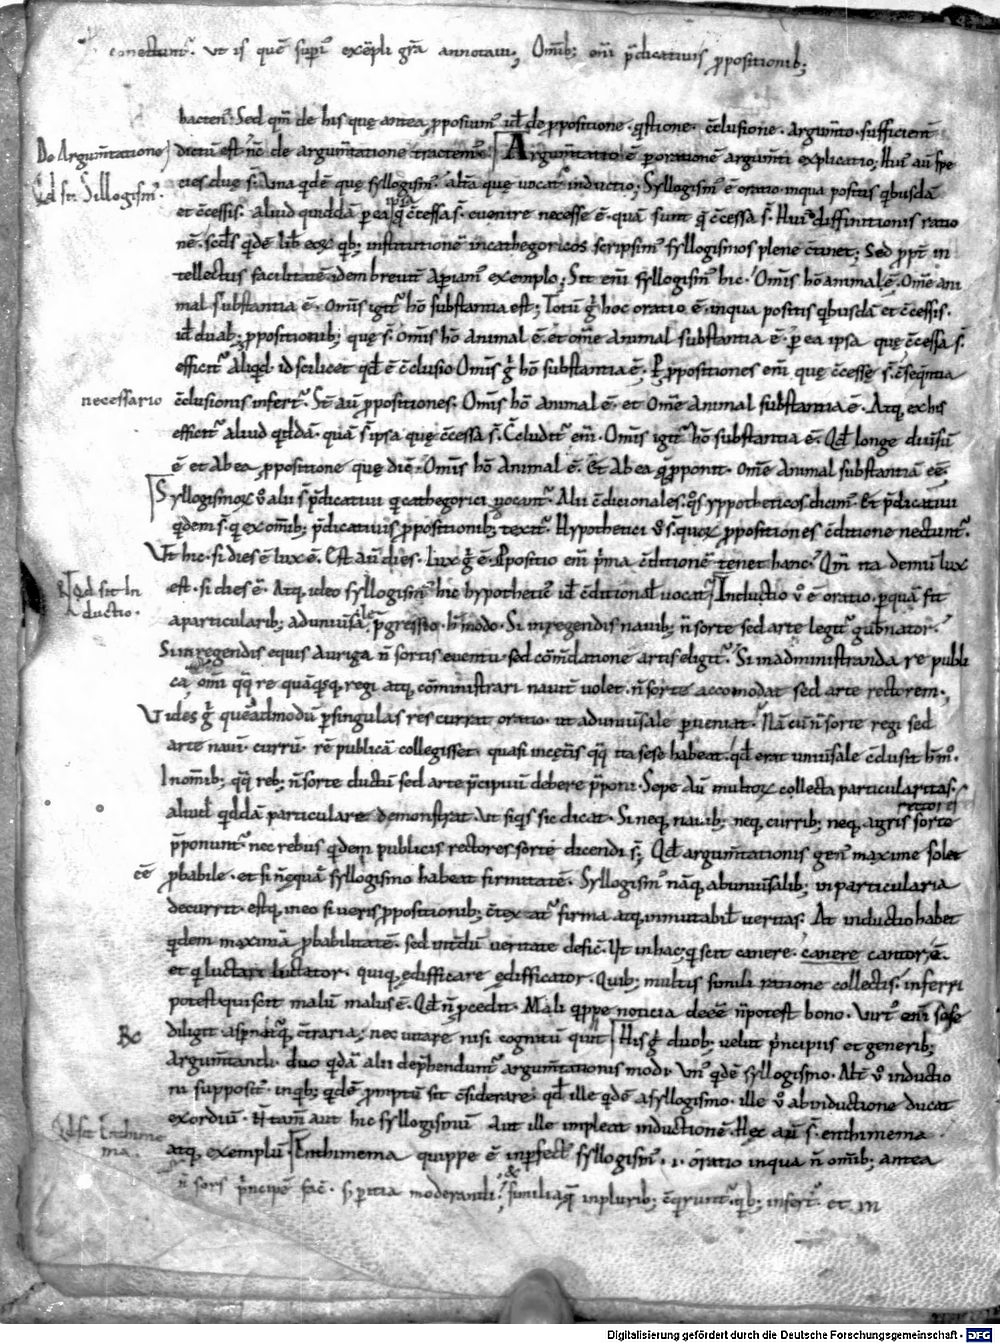 conectunt᷑. Ut is quę sup᷑ius exēpli gr̄a annotaui; Omīb; enī p̄dicatiuis ꝓpositionib;
hacten᷒. Sed qm̄ de his quę antea ꝓposuim᷒ id est de ꝓpositione. questione. c̄clusione. argum̄to. sufficient᷑
De Argum̄tatione
dictū est nc̄ de argum̄tatione tractem᷒. Argum̄tatio ē ꝑ orationē argum̄ti explicatio; Hui᷒ aū spe
Qd sit Sillogism᷒.
cies duę s̄. Una qdē quę syllogism᷒. alt̄a quę uocat᷑ inductio; Syllogism᷒ ē oratio inqua positis qbusdā
et c̄cessis. aliud quiddā ꝑ ea ipsa q̄ c̄cessa s̄. euenire necesse ē. quā sunt q̄ c̄cessa s̄. Hui᷒ diffinitionis ratio
nē. scd̄s qdē lib̄ eoꝝ qb; institutionē incathegoricos scripsim᷒ syllogismos plene c̄tinet; Sed ꝓpt̄ in
tellectus facilitatē idem breuit̄ apiam᷒ exemplo; Sit enī syllogism᷒ hic. Omīs hō animal ē. Om̄e ani
mal substantia ē. Omīs igit᷑ hō substantia est; Totū g̊ hoc oratio ē. inqua positis qbusdā et c̄cessis.
id duab; ꝓpositionib; quę s̄. Omīs hō animal ē. et om̄e animal substantia ē. ꝑ ea ipsa quę c̄cessa s̄.
efficit᷑ aliqd. id scilicet qd ē c̄clusio Omīs g̊ hō substantia ē; Ꝑ ꝓpositiones enī quę c̄cessę s̄. c̄seqntia
necessario
c̄clusionis infert᷑. St̄ aū ꝓpositiones. Omīs hō animal ē. et Om̄e animal substantia ē. Atq; ex his
efficit᷑ aliud qddā. quā s̄ ipsa quę c̄cessa s̄. C̄cludit᷑ enī. Omīs igit᷑ hō substantia ē. Qd longe diuīsū
ē et ab ea ꝓpositione quę dic̄. Omīs hō animal ē. Et ab ea q̄ ꝓponit. Om̄e animal substantiā eē.
Syllogismoꝝ v̊ alii s̄ p̄dicatiui qui cathegorici uocant᷑. Alii c̄dicionales. qos yppotheticos dicim᷒. Et p̄dicatiui
qdem s̄. q ex omīb; p̄dicatiuis ꝓpositionib; texit᷑. Hypothetici v̊ s̄. quoꝝ ꝓpositiones c̄ditione nectunt᷑.
Ut hic. si dies ē lux ē. Est aū dies. Lux g̊ ē. Ꝓpositio enī p̄ma c̄ditionē tenet hanc. Qm̄ ita demū lux
Qd sit in
est. si dies ē. Atq; ideo syllogism᷒ hic hypothetic᷒ id c̄ditional᷒ uocat᷑. Inductio v̊ ē oratio. ꝑ quā fit
ductio.
a particularib; ad uniūsalē ꝓgressio. h̄ modo. Si in regendis nauib; n̄ sorte sed arte legit᷑ gub̄nator.
Si in regendis equis auriga n̄ sortis euentu. sed cōm̄datione artis eligit᷑. Si in administranda re publi
ca omī qq re quāqsq; regi atq; cōministrari nauit̄ uolet. n̄ sorte accomodat sed arte rectorem.
Vides g̊ queadmodū ꝑ singulas res currat oratio. ut ad uniūsale ꝑueniat. Nā cū n̄ sorte regi sed
arte nauī. currū. rē publicā collegisset. quasi in cęt̄is qq ita sese habeat. qd erat uniūsale c̄clusit h̄ m̊.
In omīb; qq reb; n̄ sorte ductū sed arte p̄cipuū debere p̄poni. Sepe aū multoꝝ collecta particularitas.
aliud qddā particulare demonstrat. Ut siqs sic dicat. Si neq; nauib; neq; currib; neq; agris sorte rectores
p̄ponunt᷑ nec rebus qdem publicis rectores sorte dicendi s̄; Qd argum̄tationis gen᷒ maxime solet
eē
ꝓbabile. et si n̄ ęquā syllogismo habeat firmitatē. Syllogism᷒ nāq; ab uniūsalib; in particularia
decurrit. estq; in eo si ueris ꝓpositionib; c̄texat᷑ firma atq; inmutabil ueritas. At inductio habet
qdem maximā ꝓbabilitatē. sed int̄dū ueritate defic̄. Ut in hac. q scit canere. canere cantor ē.
et q luctari luctator. quiq; ędifficare ędifficator. Quib; multis simili ratione collectis. inferri
potest. qui scit malū malus ē. Qd n̄ ꝓcedit. Mali qppe noticia deeē n̄ potest bono. Virt᷒ enī sese
diligit. aspnatq; c̄traria; nec uitare nisi cognitū quit. His g̊ duob; uelut p̄ncipiis et generib;
argum̄tandi. duo qdā alii dep̄hendunt᷑ argum̄tationis modi. Un᷒ qdē syllogismo. Alt̄ v̊ inductio
ni supposit᷒. in qb; qdē ꝓmptū sit c̄siderare. qd ille qdē a syllogismo. ille v̊ ab inductione ducat
exordiū. N̄ tam̄ aut hic syllogismū aut ille impleat inductionē. Hęc aū s̄. enthimema
Qd sit Enthime
ma.
atq; exemplū. Enthimema quippe ē inꝑfect᷒ syllogism᷒. .i. oratio inqua n̄ omīb; antea
n̄ sors p̄ncipē fac̄. s; ꝑitia moderandi. &similiaq; in plurib; c̄qrunt᷑. qb; infert᷑. et in